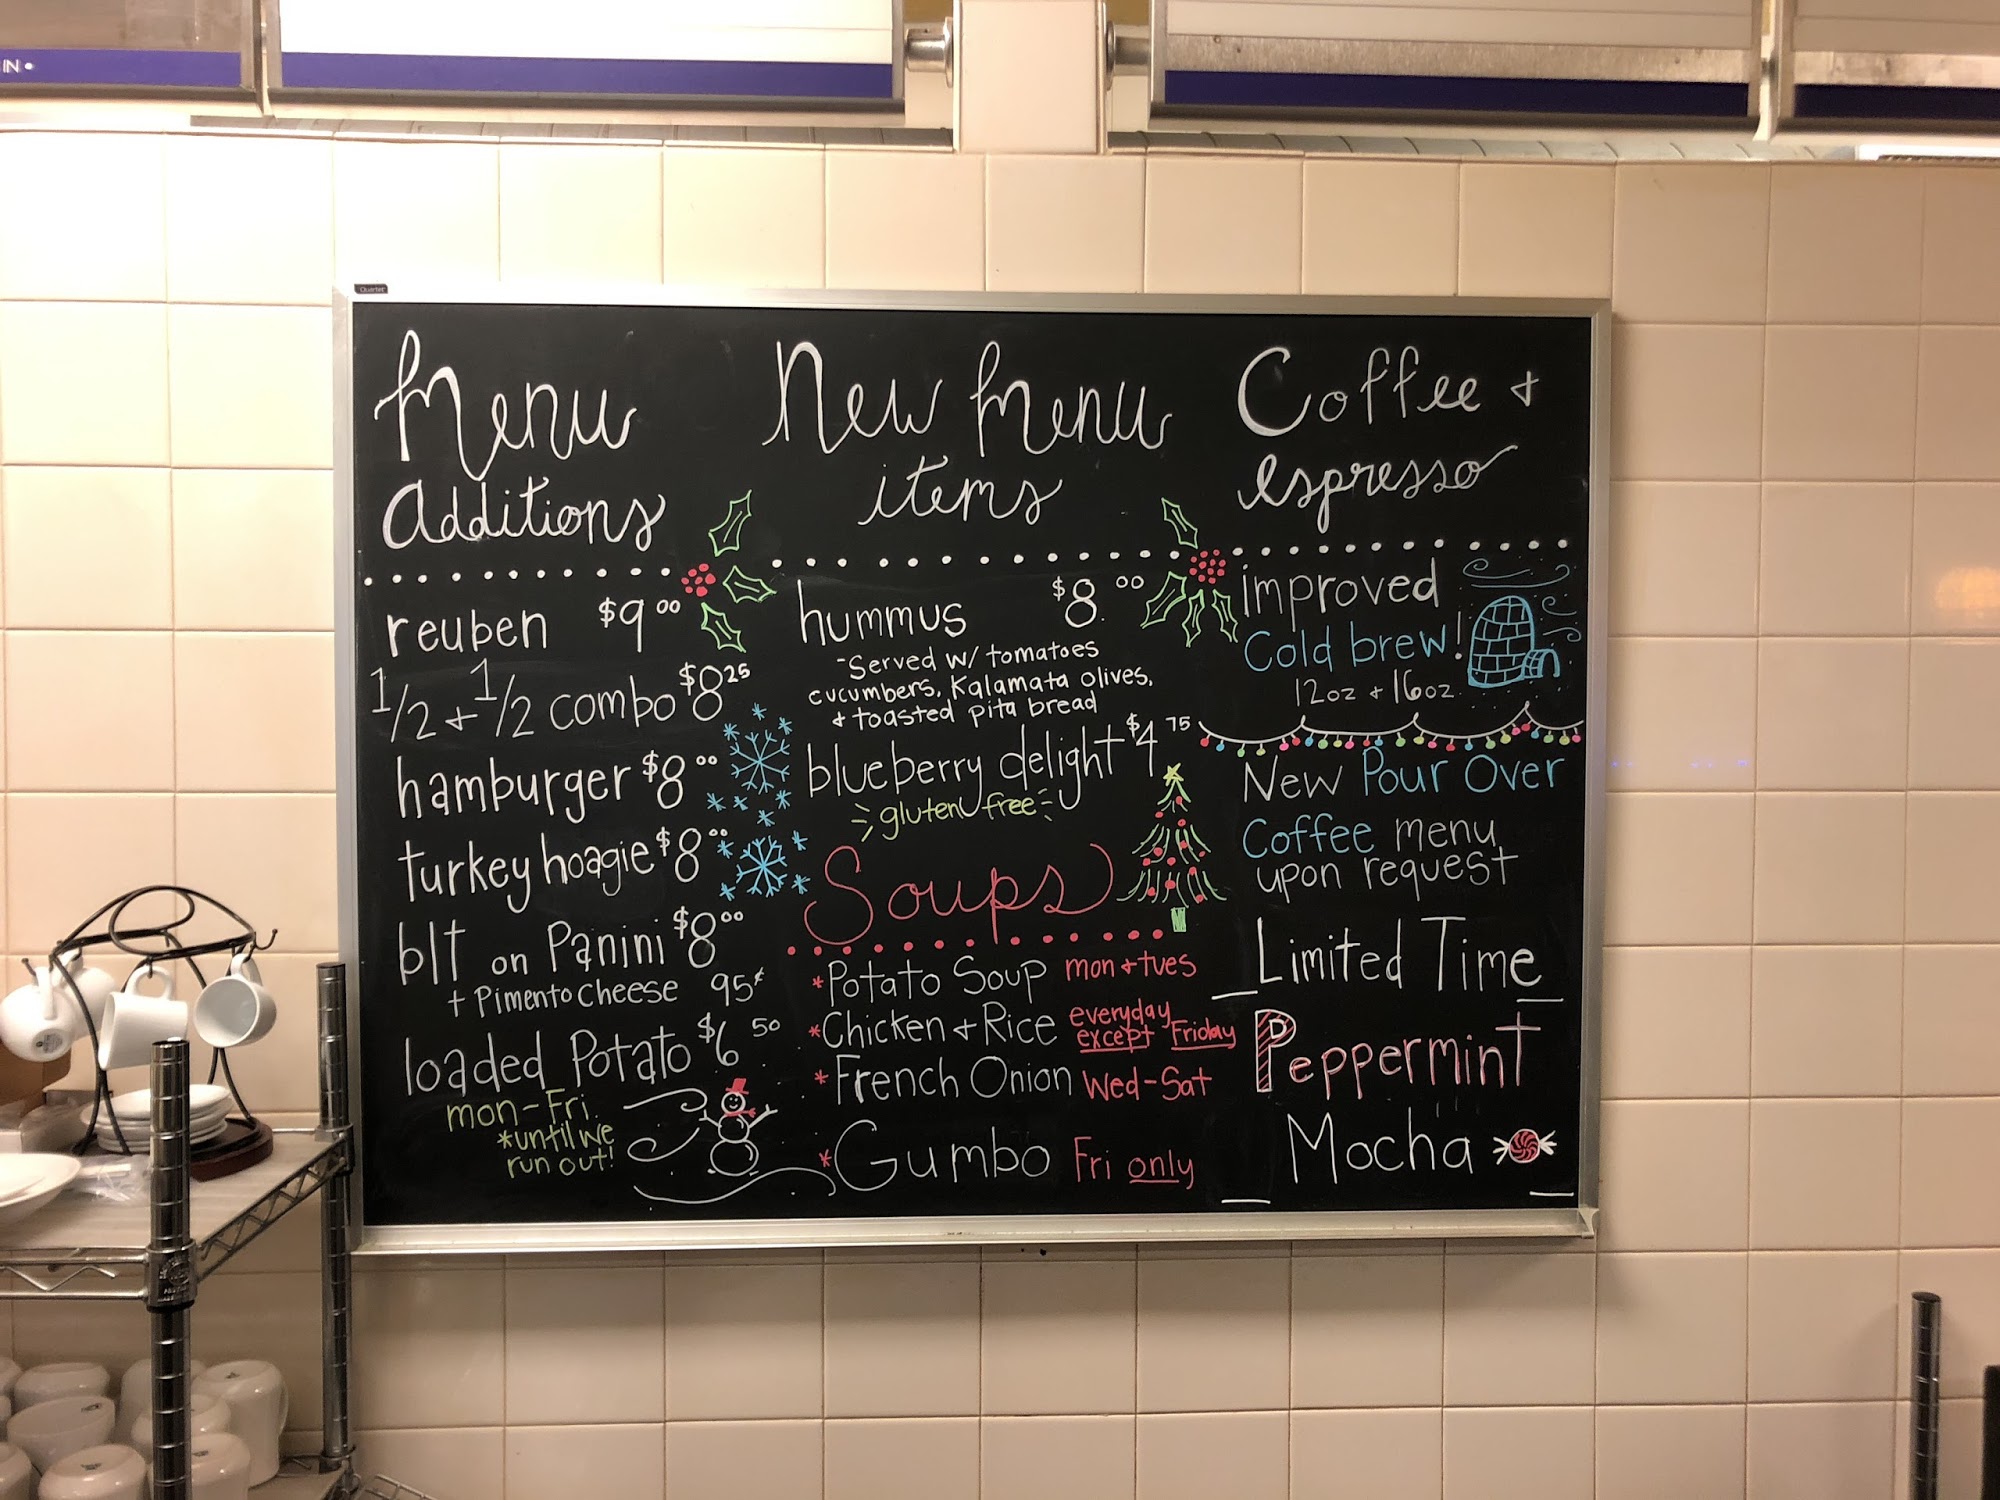 IN •
Quartet
Menu
additions
reuben $9 00
1/2 + 1/2 combo $8 25
hamburger $8 00
turkey hoagie $8 00
blt on Panini $8 00
+ Pimento cheese 95¢
loaded Potato $6 50
mon-Fri.
*until we
run out!
New Menu
items
hummus $8. 00
-Served w/ tomatoes
cucumbers, Kalamata olives,
+ toasted pita bread
blueberry delight $4 75
gluten free
Soups
*Potato Soup mon + tues
*Chicken + Rice everyday
except Friday
*French Onion Wed-Sat
*Gumbo Fri only
Coffee +
espresso
improved
Cold brew!
12oz + 16oz.
New Pour Over
Coffee menu
upon request
Limited Time
Peppermint
Mocha